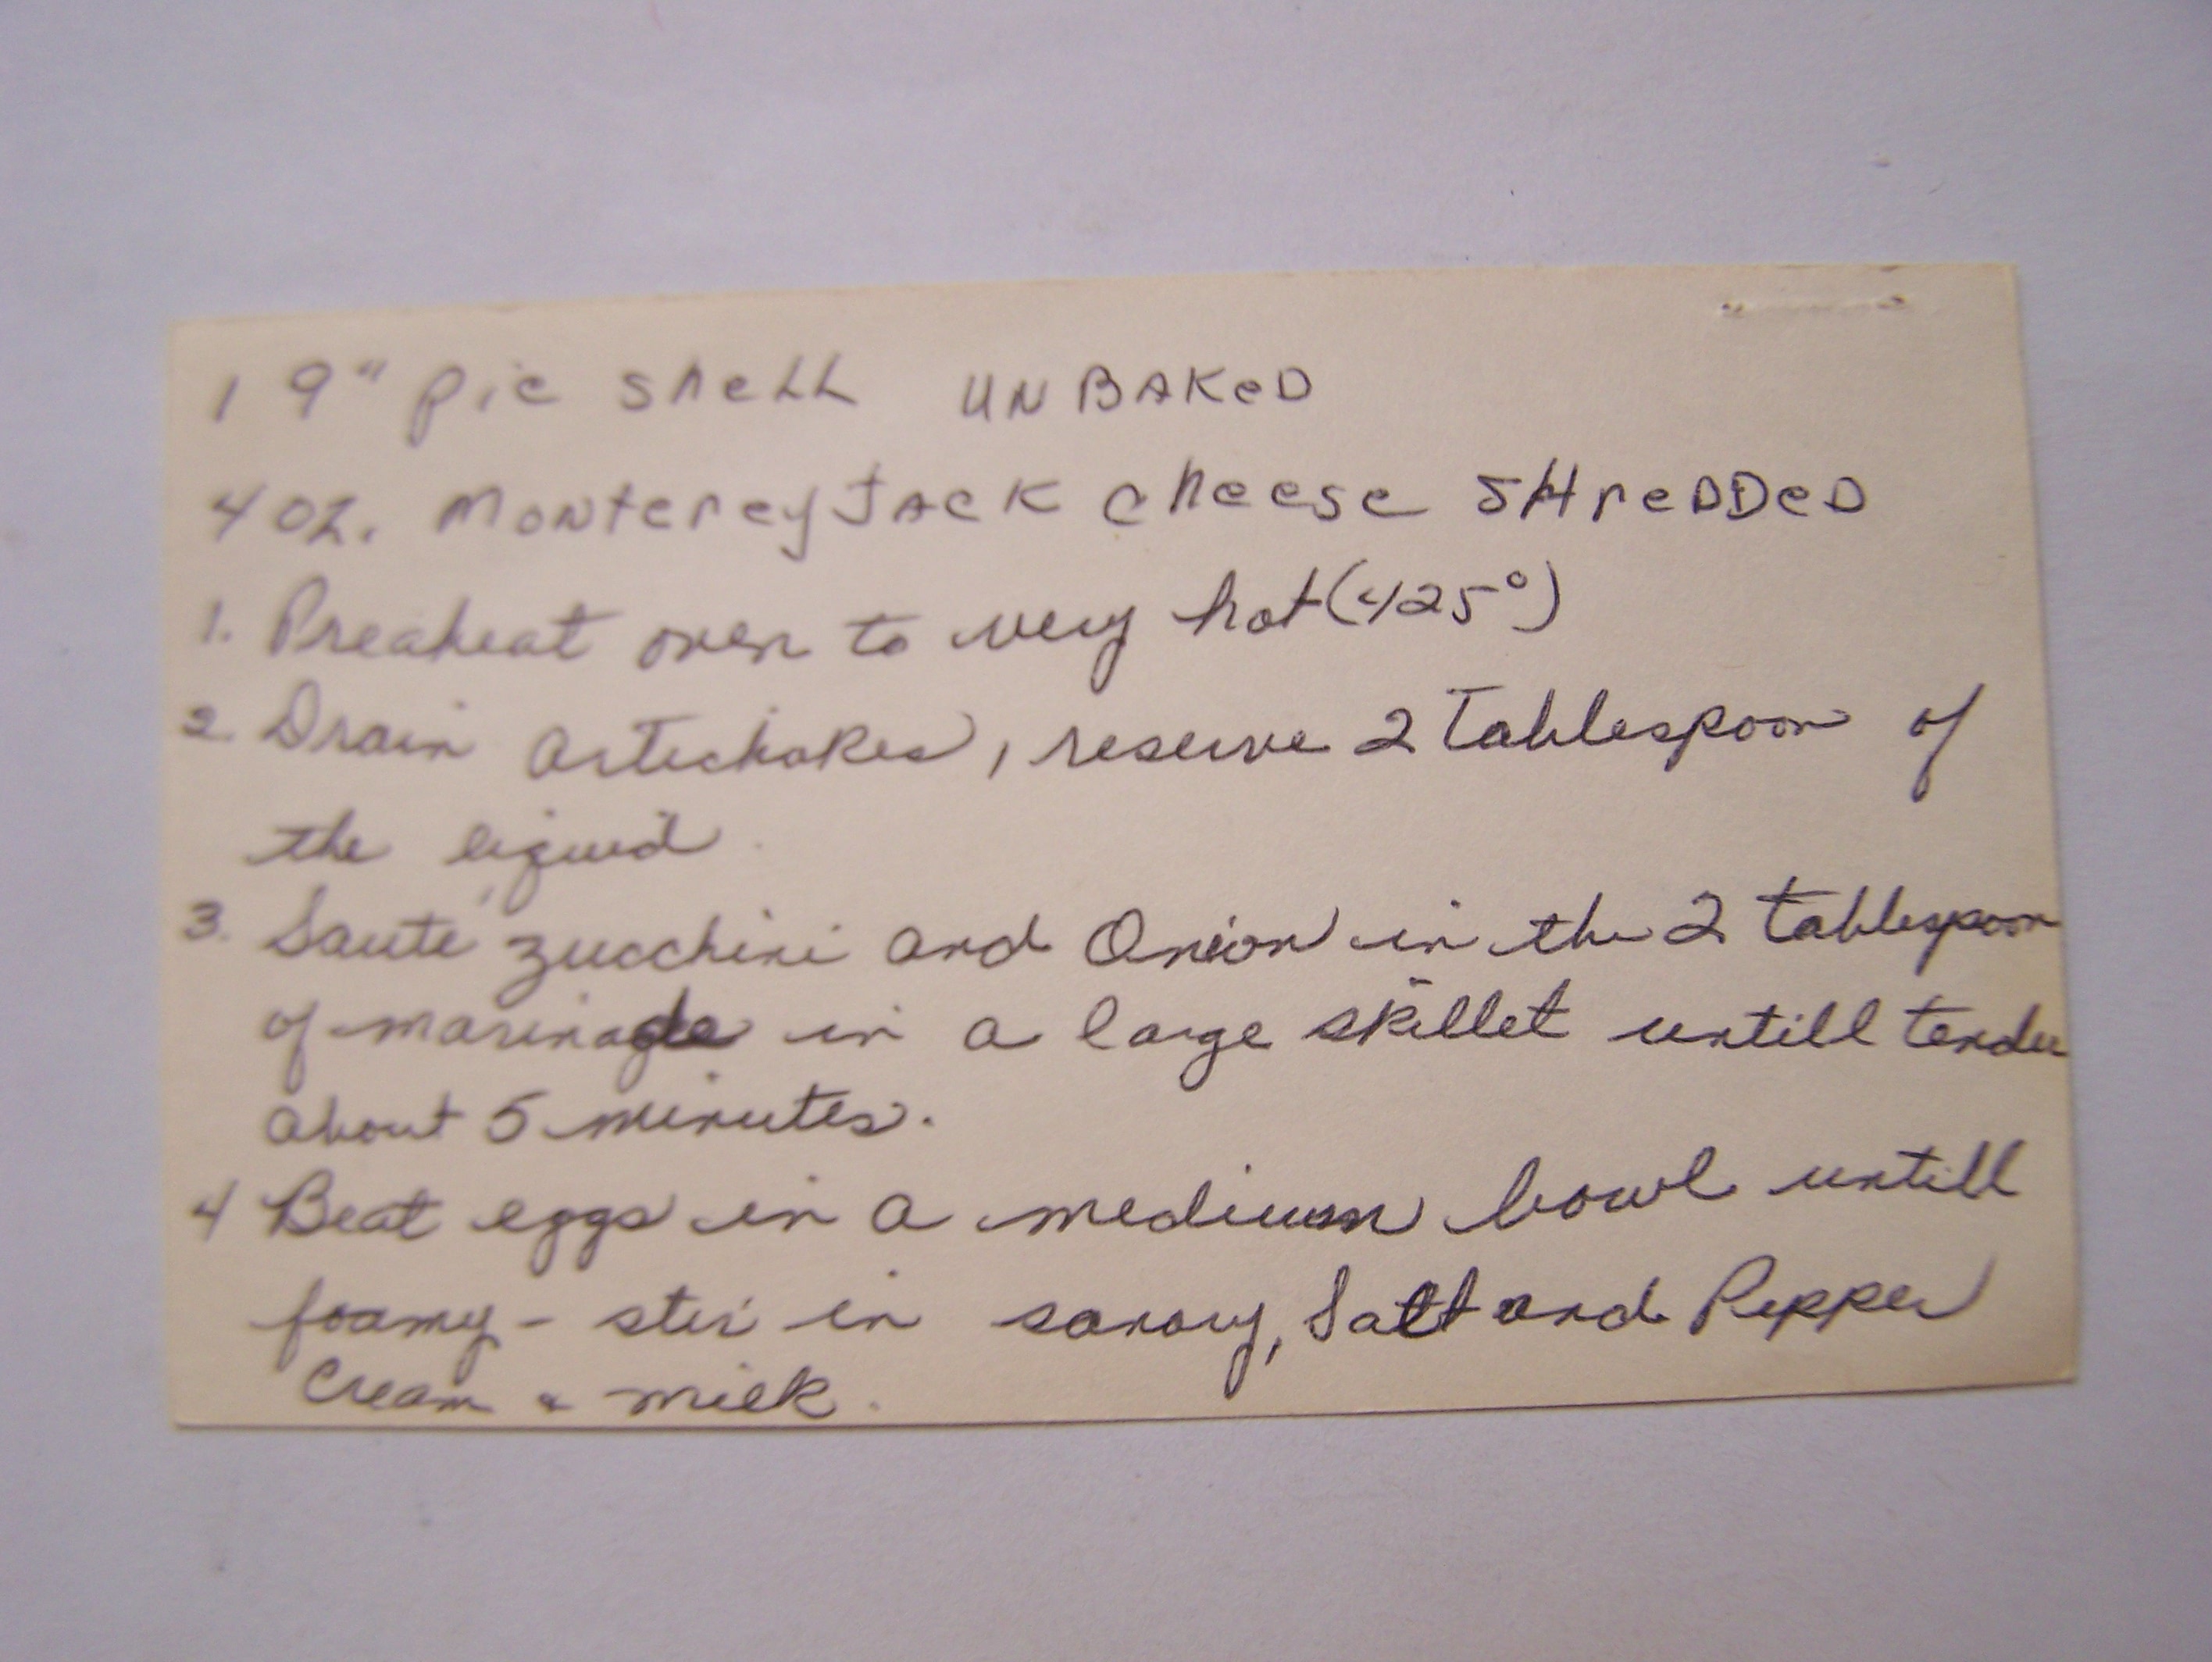 1 9" pie shell UNBAKED
4 oz. Monterey Jack cheese SHredded
1. Preaheat oven to very hot (425°)
2 Drain artichokes, reserve 2 Tablespoon of
the liquid.
3. Saute zucchini and Onion in the 2 tablespoon
of marinade in a large skillet untill tender
about 5 minutes.
4 Beat eggs in a medium bowl untill
foamy - stir in savory, Salt and Pepper
Cream & milk.